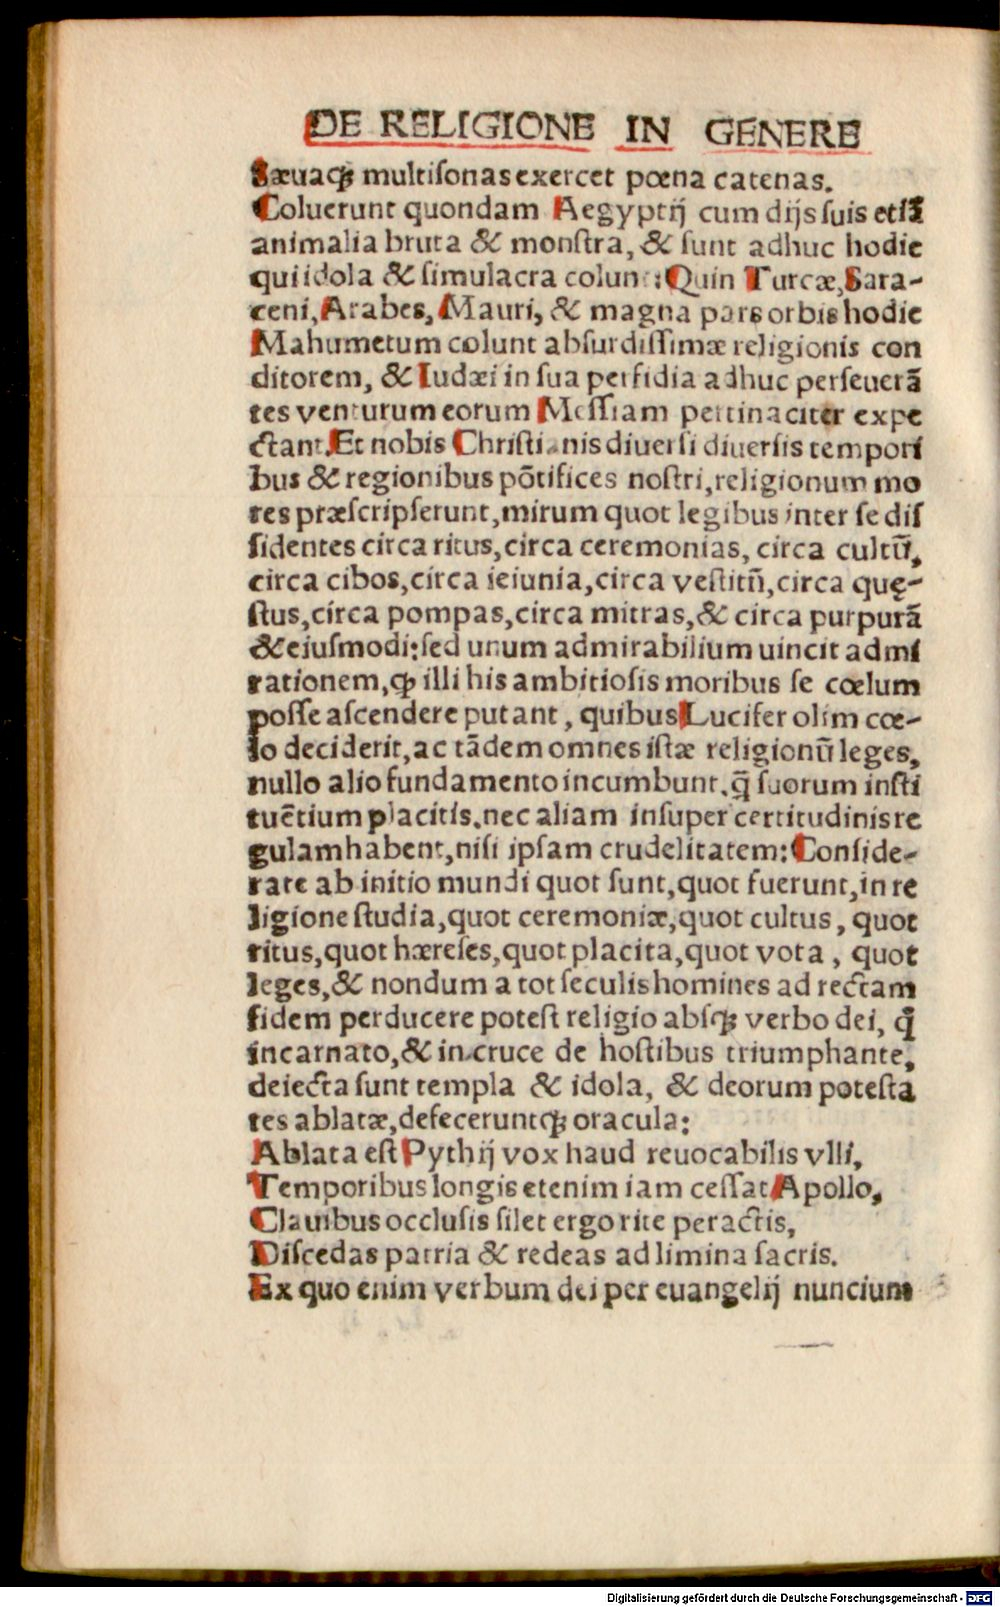 DE RELIGIONE IN GENERE
Sæuaqꝫ multiſonas exercet pœna catenas.
Coluerunt quondam Aegyptij cum dijs ſuis etiã
animalia bruta & monſtra, & ſunt adhuc hodie
qui idola & ſimulacra colunt: Quin Turcæ, Sara-
ceni, Arabes, Mauri, & magna pars orbis hodie
Mahumetum colunt abſurdiſſimæ religionis con
ditorem, & Iudæi in ſua perfidia adhuc perſeuerã
tes venturum eorum Meſſiam pertinaciter expe
ctant. Et nobis Chriſtianis diuerſi diuerſis tempori
bus & regionibus põtifices noſtri, religionum mo
res præſcripſerunt, mirum quot legibus inter ſe diſ
ſidentes circa ritus, circa ceremonias, circa cultũ,
circa cibos, circa ieiunia, circa veſtitũ, circa quę-
ſtus, circa pompas, circa mitras, & circa purpurã
& eiuſmodi: ſed unum admirabilium uincit admi
rationem, ꝙ illi his ambitioſis moribus ſe cœlum
poſſe aſcendere putant, quibus Lucifer olim cœ-
lo deciderit, ac tãdem omnes iſtæ religionũ leges,
nullo alio fundamento incumbunt, q̃ ſuorum inſti
tuẽtium placitis, nec aliam inſuper certitudinis re
gulam habent, niſi ipſam crudelitatem: Conſide-
rate ab initio mundi quot ſunt, quot fuerunt, in re
ligione ſtudia, quot ceremoniæ, quot cultus, quot
ritus, quot hæreſes, quot placita, quot vota, quot
leges, & nondum a tot ſeculis homines ad rectam
fidem perducere poteſt religio abſqꝫ verbo dei, q̃
incarnato, & in cruce de hoſtibus triumphante,
deiecta ſunt templa & idola, & deorum poteſta
tes ablatæ, defeceruntqꝫ oracula:
Ablata eſt Pythij vox haud reuocabilis vlli,
Temporibus longis etenim iam ceſſat Apollo,
Clauibus occluſis ſilet ergo rite peractis,
Diſcedas patria & redeas ad limina ſacris.
Ex quo enim verbum dei per euangelij nuncium
Digitalisierung gefördert durch die Deutsche Forschungsgemeinschaft - DFG